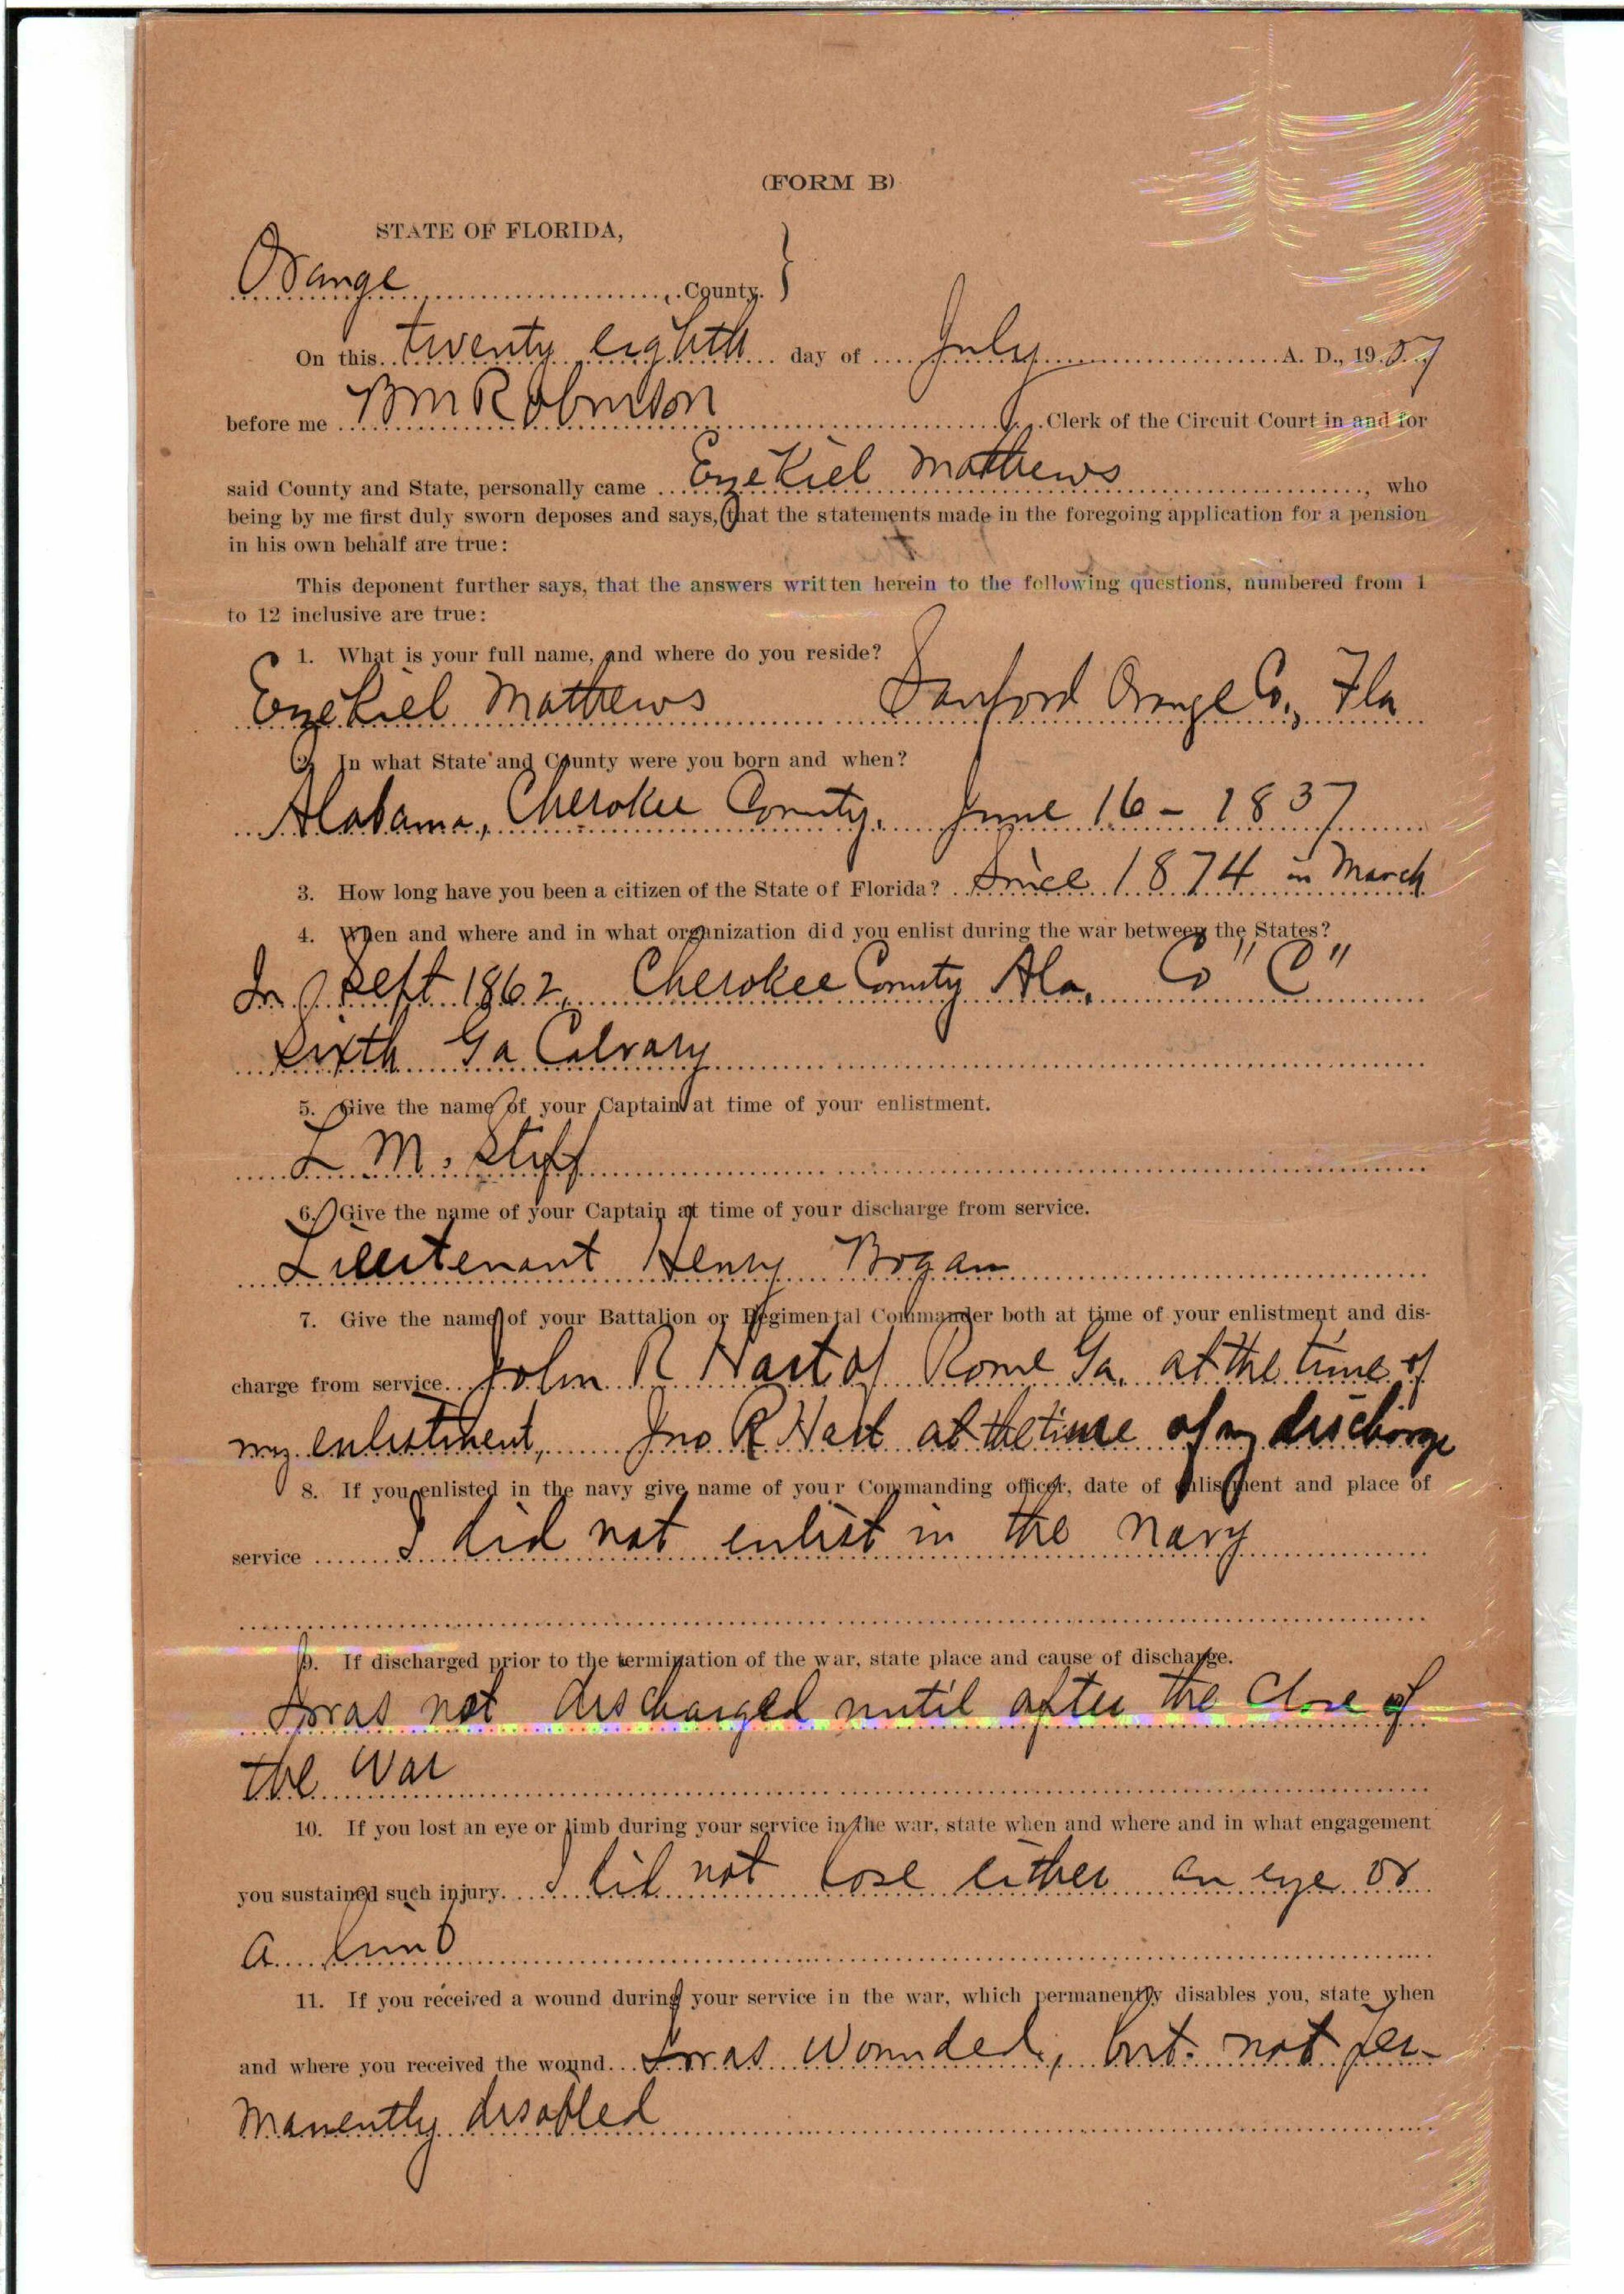 (FORM B)
STATE OF FLORIDA,
Orange County.
On this twenty eighth day of July A. D., 1907
before me B M Robinson, Clerk of the Circuit Court in and for
said County and State, personally came Ezekiel Mathews, who
being by me first duly sworn deposes and says, that the statements made in the foregoing application for a pension
in his own behalf are true:
This deponent further says, that the answers written herein to the following questions, numbered from 1
to 12 inclusive are true:
1. What is your full name, and where do you reside?
Ezekiel Mathews Sanford Orange Co., Fla
2. In what State and County were you born and when?
Alabama, Cherokee County. June 16 - 1837
3. How long have you been a citizen of the State of Florida? Since 1874 in March
4. When and where and in what organization did you enlist during the war between the States?
In Sept 1862, Cherokee County Ala. Co "C"
Sixth Ga Calvary
5. Give the name of your Captain at time of your enlistment.
L. M. Stiff
6. Give the name of your Captain at time of your discharge from service.
Lieutenant Henry Bogan
7. Give the name of your Battalion or Regimental Commander both at time of your enlistment and dis-
charge from service. John R Hart of Rome Ga. at the time of
my enlistment, Jno R Hart at the time of my discharge
8. If you enlisted in the navy give name of your Commanding officer, date of enlistment and place of
service I did not enlist in the navy
9. If discharged prior to the termination of the war, state place and cause of discharge.
I was not discharged until after the close of
the war
10. If you lost an eye or limb during your service in the war, state when and where and in what engagement
you sustained such injury. I did not lose either an eye or
a limb
11. If you received a wound during your service in the war, which permanently disables you, state when
and where you received the wound. I was wounded, but not per-
manently disabled